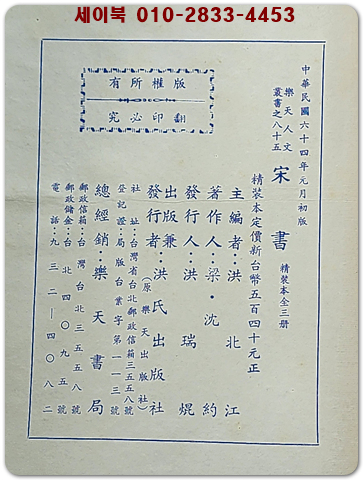 세이북 010-2833-4453
中華民國六十四年元月初版
樂天人文叢書之八十五
宋書
精裝本全三册
精裝本定價新台幣五百四十元正
主編者：洪北江
著作人：梁・沈約
發行人：洪瑞焜
出版兼發行者：洪氏出版社
（原樂天出版社）
社址：台灣省台北郵政信箱三五五八號
登記證：局版台業字第一一三號
總經銷：樂天書局
郵政信箱：台灣台北三五五八號
郵政儲金：台北四〇九五號
電話：九三二—四〇八二
版權所有
翻印必究